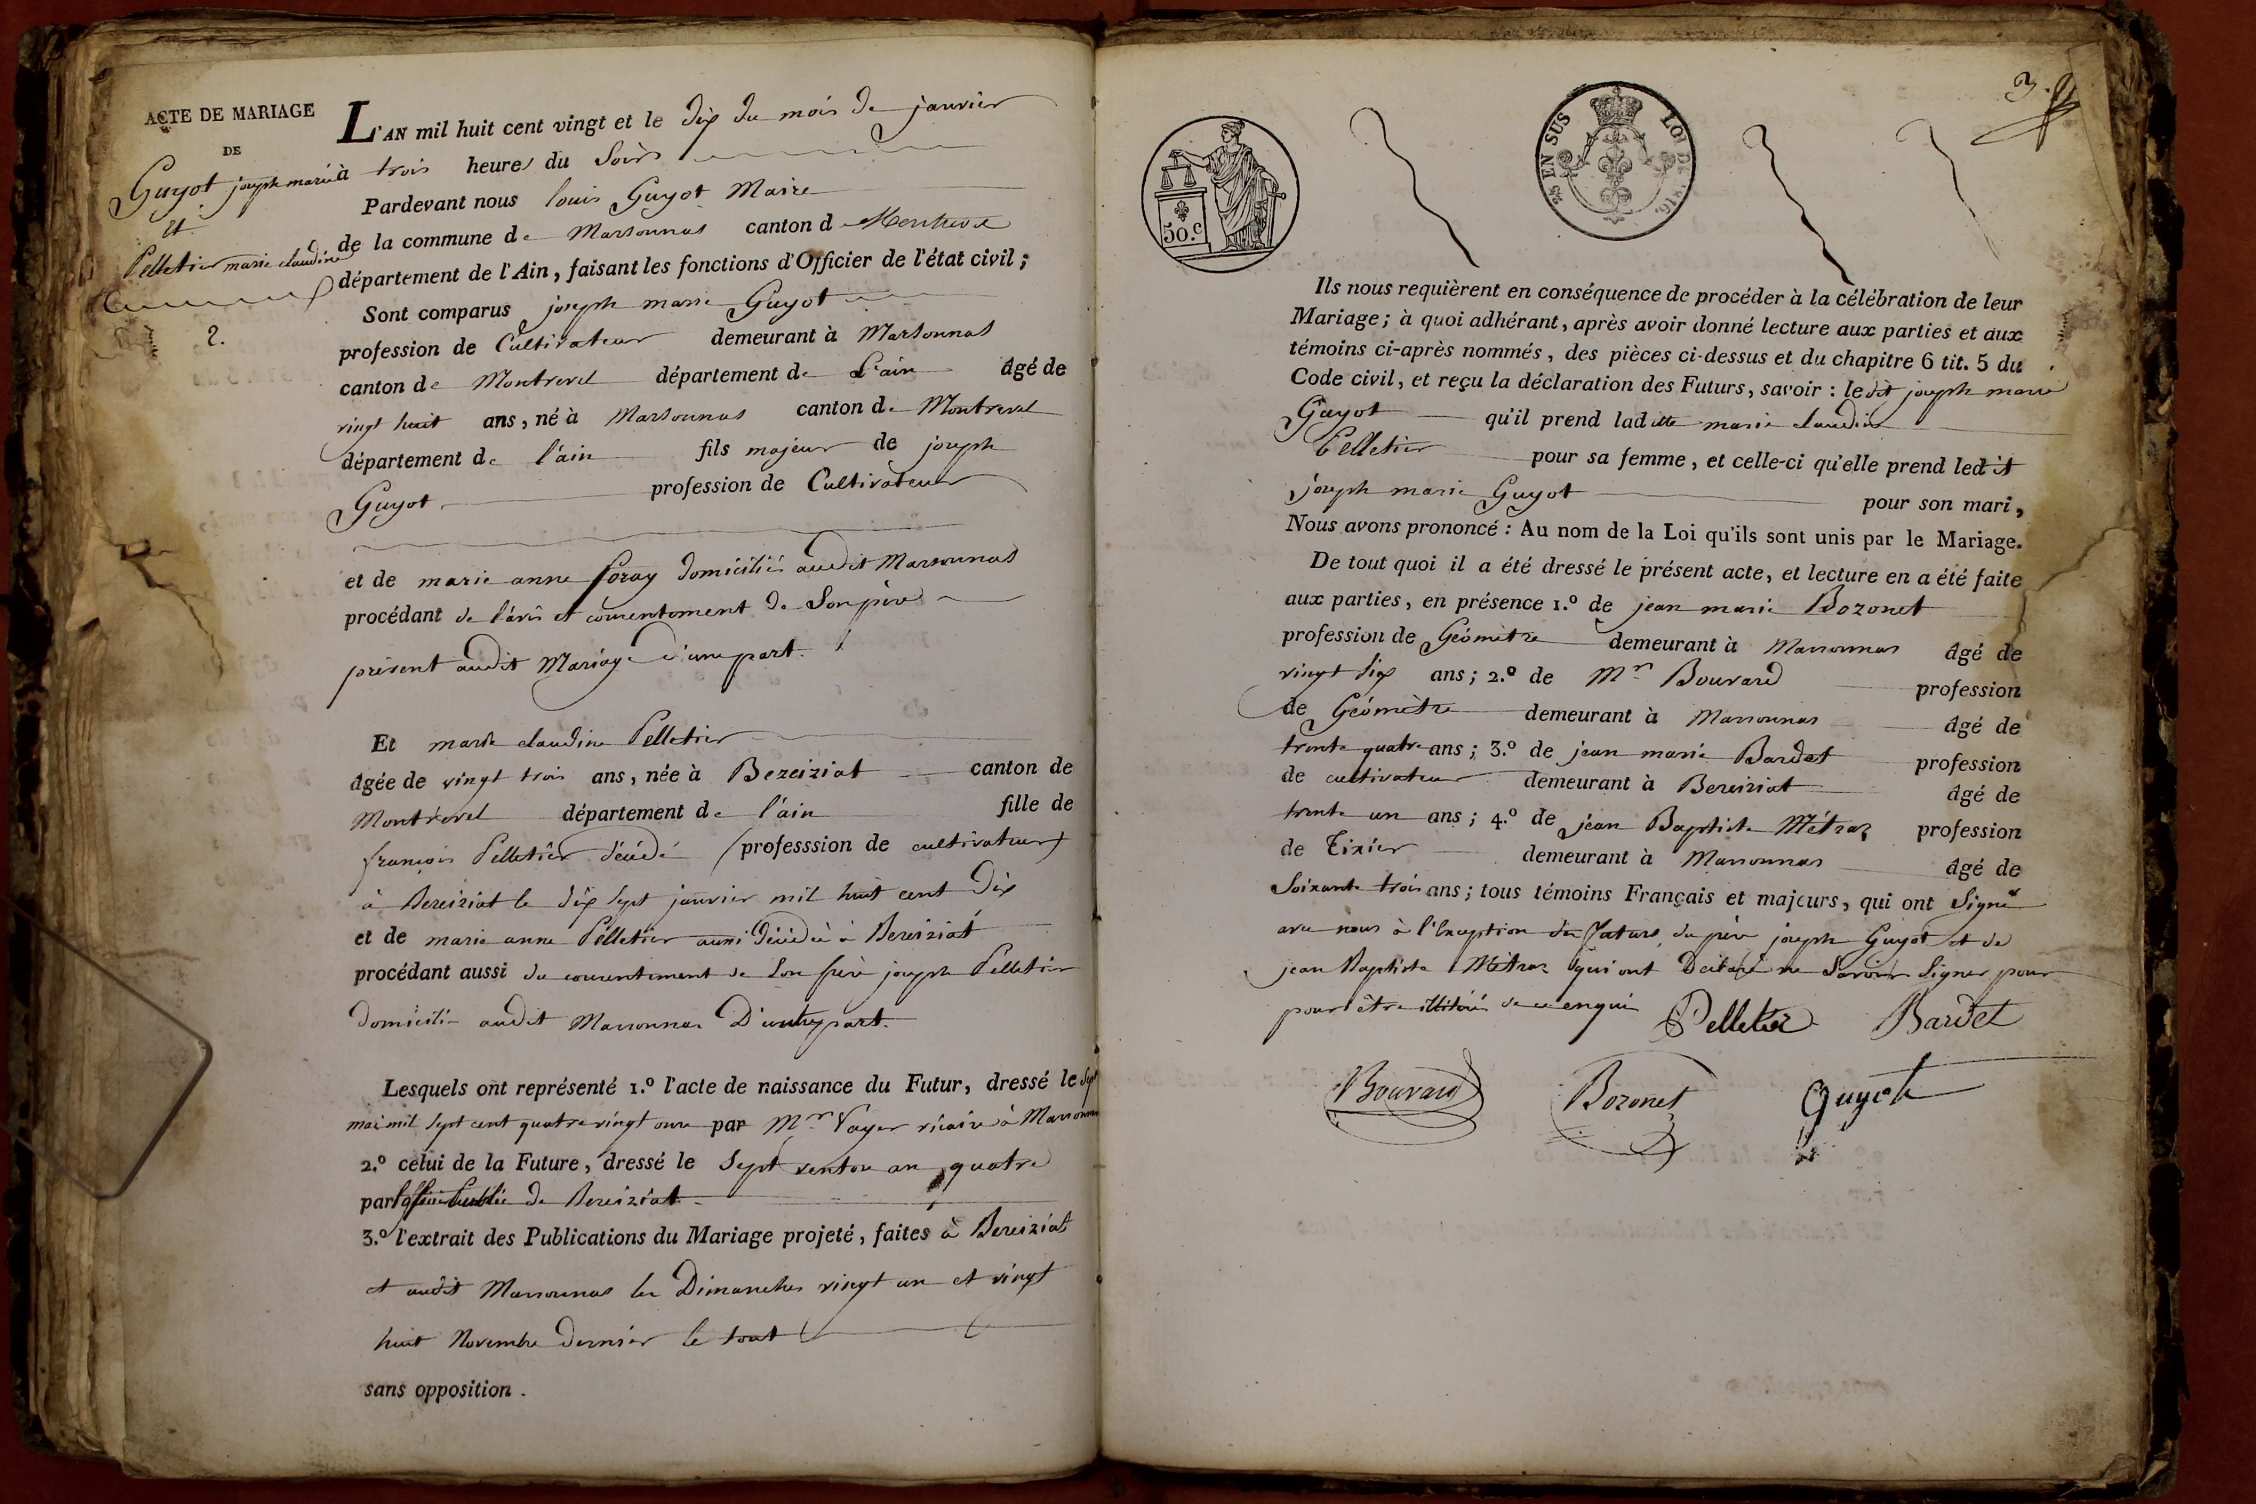 ACTE DE MARIAGE
DE
Guyot joseph marie
Et
Pelletier marie claudine
2.
L'AN mil huit cent vingt et le dix du mois de janvier
à trois heures du Soir
Pardevant nous louis Guyot Maire
de la commune de Marsonnas canton d Montrevel
département de l'Ain, faisant les fonctions d'Officier de l'état civil;
Sont comparus joseph marie Guyot
profession de Cultivateur demeurant à Marsonnas
canton de Montrevel département de L'ain âgé de
vingt huit ans, né à Marsonnas canton de Montrevel
département de l'ain fils majeur de joseph
Guyot profession de Cultivateur
et de marie anne foray domiciliés audit Marsonnas
procédant de l'avis et consentement de Son père
présent audit Mariage d'une part.
Et marie claudine Pelletier
âgée de vingt trois ans, née à Bereiziat canton de
Montrevel département de l'ain fille de
françois Pelletier décédé (professsion de cultivateur)
à Bereiziat le dix sept janvier mil huit cent dix
et de marie anne Pelletier aussi décédée à Bereiziat
procédant aussi du consentement de Son frère joseph Pelletier
domicilié audit Marsonnas D'autre part.
Lesquels ont représenté 1.º l'acte de naissance du Futur, dressé le Sept
mai mil sept cent quatre vingt onze par Mr Vayer vicaire à Marsonnas
2.º celui de la Future, dressé le Sept ventose an quatre
par l'officier Public de Bereiziat
3.º l'extrait des Publications du Mariage projeté, faites à Bereiziat
et audit Marsonnas les Dimanches vingt un et vingt
huit Novembre dernier le tout
sans opposition.
3.
50.c
25 EN SUS LOI DE 1816.
Ils nous requièrent en conséquence de procéder à la célébration de leur
Mariage; à quoi adhérant, après avoir donné lecture aux parties et aux
témoins ci-après nommés, des pièces ci-dessus et du chapitre 6 tit. 5 du
Code civil, et reçu la déclaration des Futurs, savoir: ledit joseph marie
Guyot qu'il prend laditte marie claudine
Pelletier pour sa femme, et celle-ci qu'elle prend ledit
joseph marie Guyot pour son mari,
Nous avons prononcé: Au nom de la Loi qu'ils sont unis par le Mariage.
De tout quoi il a été dressé le présent acte, et lecture en a été faite
aux parties, en présence 1.º de jean marie Bozonet
profession de Géomètre demeurant à Marsonnas âgé de
vingt six ans; 2.º de Mr Bouvard profession
de Géomètre demeurant à Marsonnas âgé de
trente quatre ans; 3.º de jean marie Bardet profession
de cultivateur demeurant à Bereiziat âgé de
trente un ans; 4.º de jean Baptiste Métraz profession
de Tixier demeurant à Marsonnas âgé de
Soixante trois ans; tous témoins Français et majeurs, qui ont Signé
avec nous à l'Exception des futurs, du père joseph Guyot et de
jean Baptiste Métraz qui ont Déclaré ne Savoir Signer pour
pour être illitérés de ce enquis
Pelletier Bardet
Bouvard Bozonet Guyot